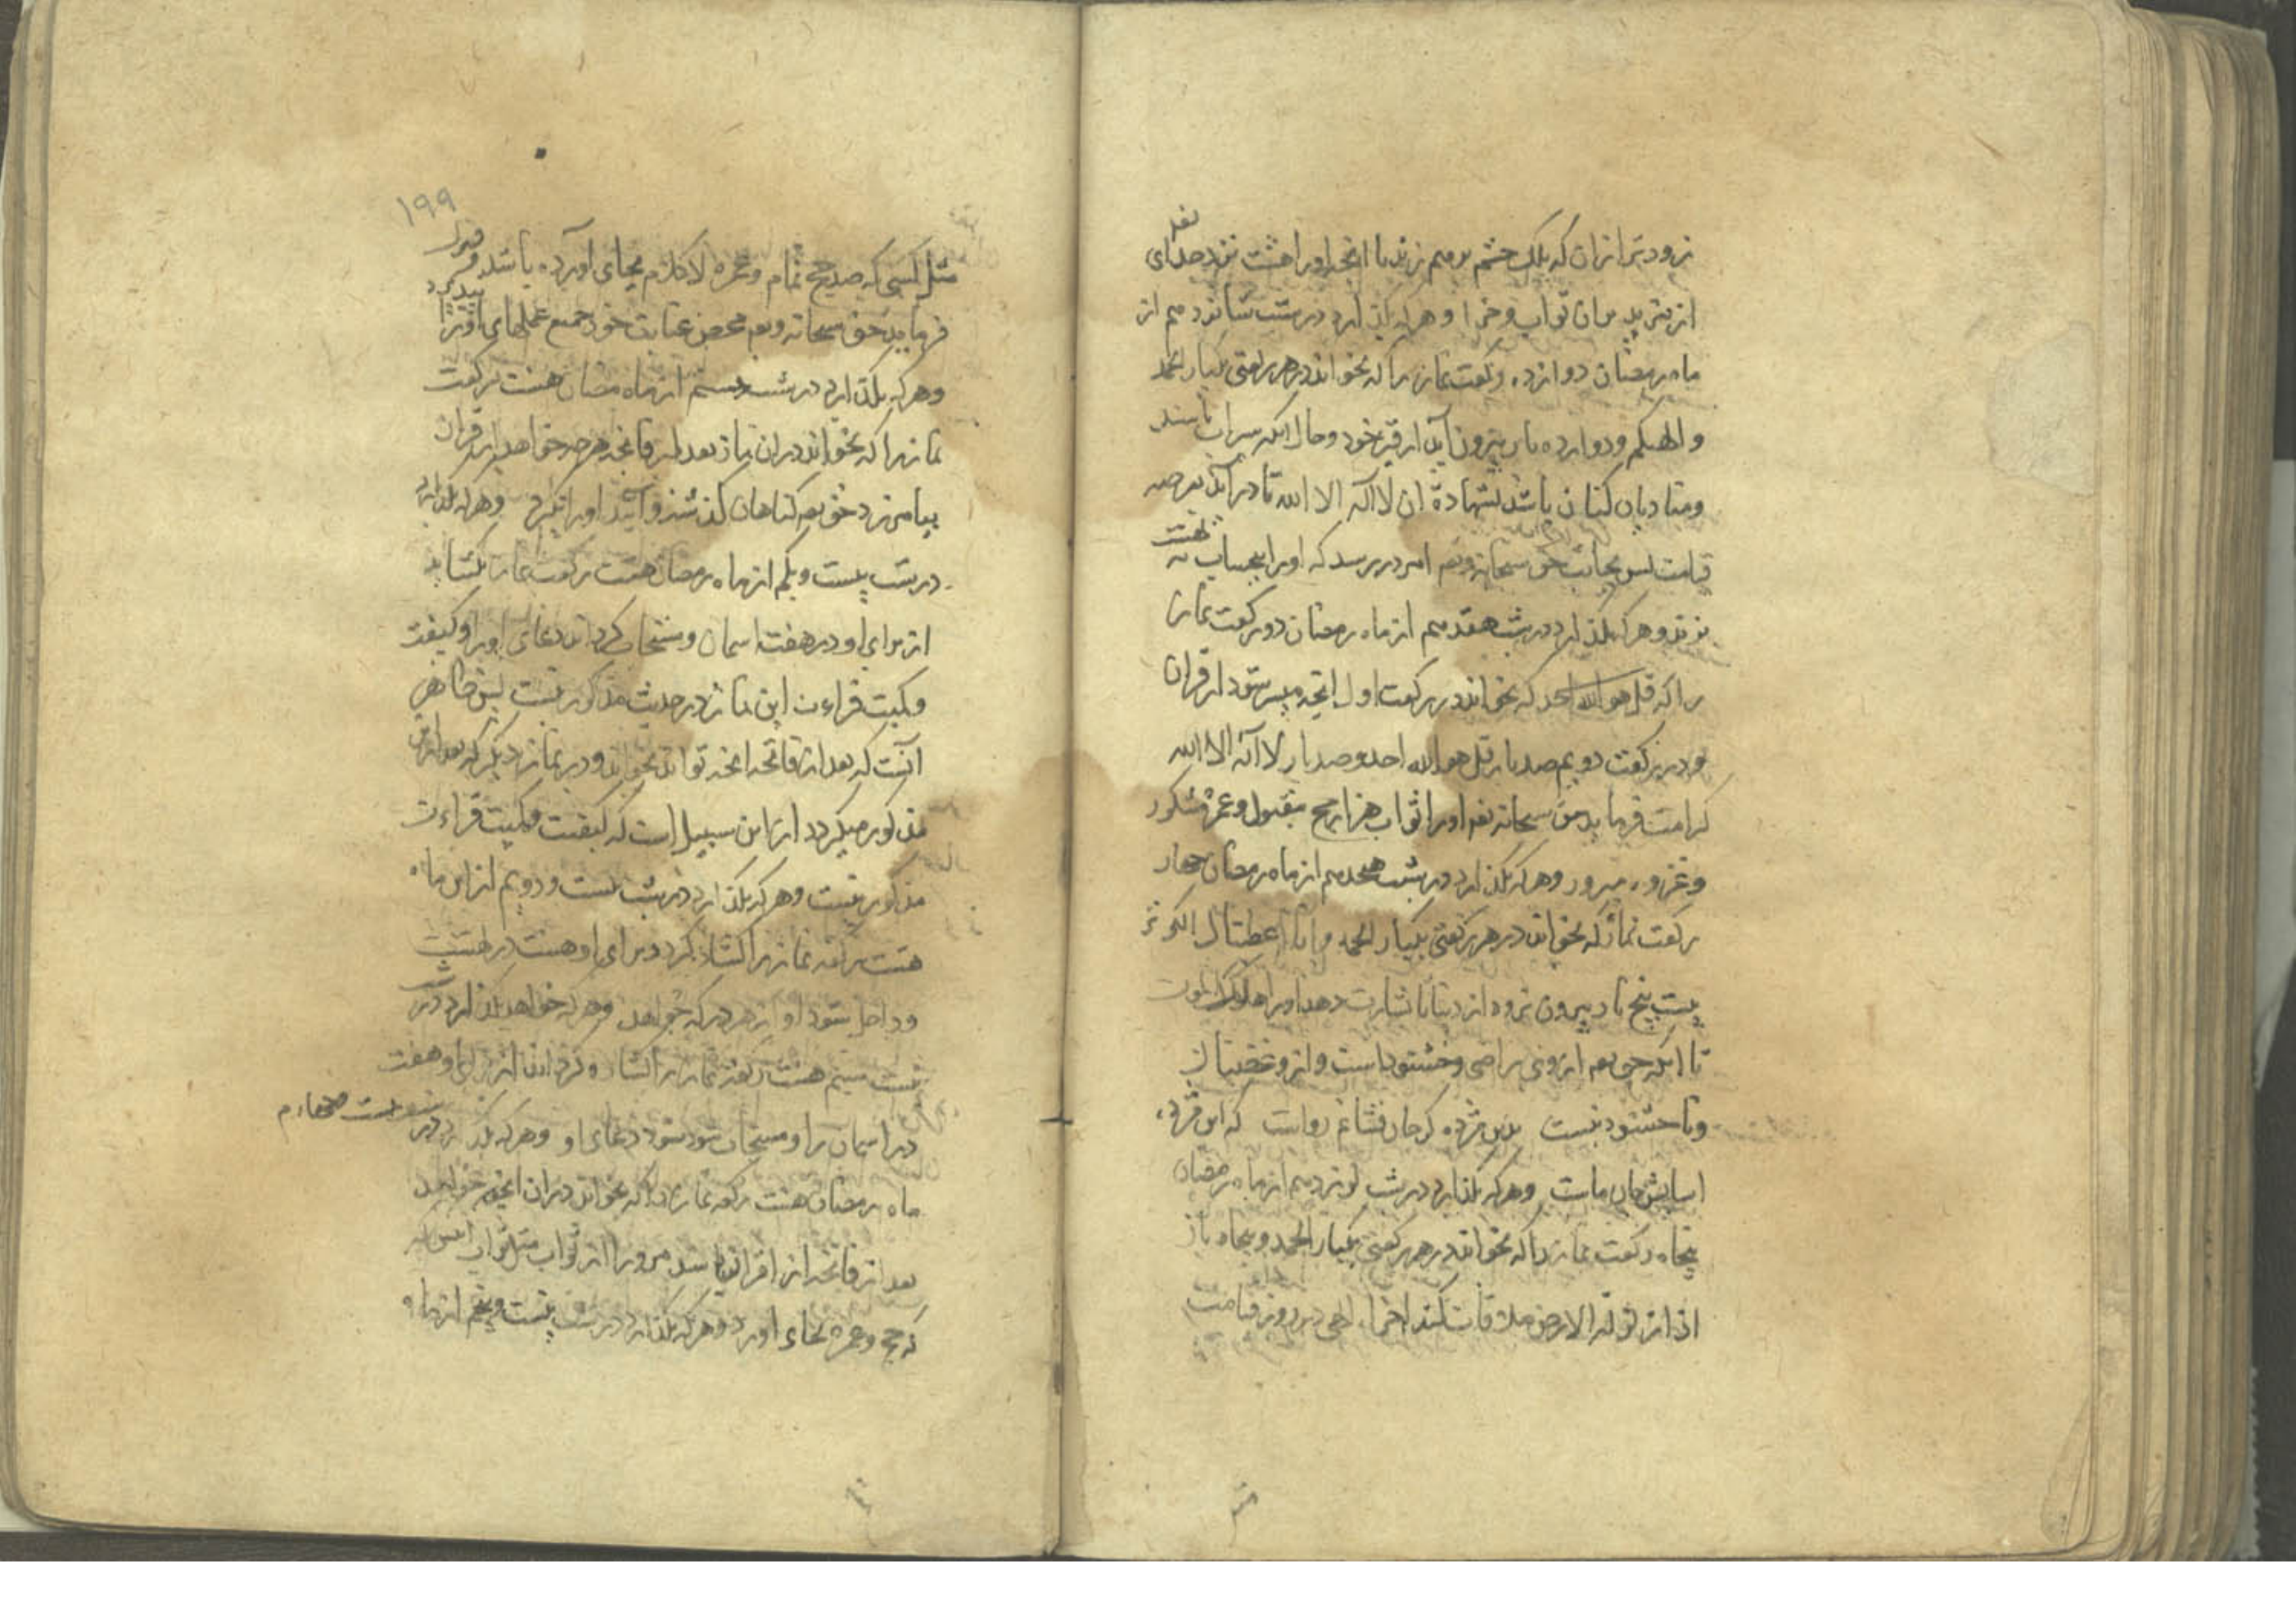 زودتر از ان که پلک چشم برهم زند با انچه اورا هشت نزد خدای تعه
از مزید بران ثواب و جزا و هر که بکذارد در شب شانزدهم از
ماه رمضان دوازده رکعت نماز را که بخواند در هر رکعتی یکبار الحمد
و الهیکم و دوازده بار بیرون آید از قبر خود و حال انکه سیراب باشد
و منادیان کنان باشد بشهادة ان لا اله الا الله تا در آید بعرصه
قیامت پس بجانب حق سبحانه و تعه امر در رسد که اورا بیحساب به بهشت
برند و هر که بکذارد در شب هفدهم از ماه رمضان دو رکعت نماز
را که قل هو الله احد که بخواند در رکعت اول انچه میسر شود از قران
و در رکعت دویم صد بار قل هو الله احد و صد بار لا اله الا الله
کرامت فرماید حق سبحانه تعه اورا ثواب هزار حج مقبول و عمره مشکور
و غزوه مبرور و هر که بکذارد در شب هجدهم از ماه رمضان چهار
رکعت نماز که بخواند در هر رکعتی یکبار الحمد و انا اعطیناک الکوثر
بیست پنج بار بیرون نرود از دنیا تا بشارت دهد اورا ملک الموت
تا انکه حق تعه از وی راضی و خشنود است و از و غضبناک
و نا خشنود نیست بدین مژده کر جان فشانم رواست که این مژده
اسایش جان ماست و هر که بکذارد در شب نوزدهم از ماه رمضان
پنجاه رکعت نماز را که بخواند در هر رکعتی یکبار الحمد و پنجاه بار
اذا زلزلة الارض ملاقات کند الهی در روز قیامت
۱۹۹
مثل کسی که صد حج تمام و عمره لا کلام بجای آورده باشد و قبول
فرماید حق سبحانه و تعه محض عنایت خود جمیع عملهای اورا
و هر که بکذارد در شب بیستم از ماه رمضان هشت رکعت
نماز را که بخواند در ان نماز بعد از فاتحه هر چه خواهد از قران
بیامرزد حق تعه کناهان کذشته و آینده اورا و هر که بکذارد
در شب بیست و یکم از ماه رمضان هشت رکعت نماز بکشاید
از برای او در هفت اسمان و مستجاب کرداند دعای اورا و کیفیت
و کمیت قراءت این نماز در حدیث مذکور نیست پس ظاهر
آنست که بعد از فاتحه انچه تواند بخواند و در نماز دیگر که بعد ازین
مذکور میکردد از این سبیل است که کیفیت و کمیت قراءت
مذکور نیست و هر که بکذارد در شب بیست و دویم از این ماه
هشت رکعه نماز را کشاده کردد برای او هشت در بهشت
و داخل شود او از هر در که خواهد و هر که خواهد بکذارد در شب
بیست سیم هشت رکعه نماز را کشاده کردد از برای او هفت
در اسمان را و مستجاب شود دعای او و هر که بکذارد در شب بیست چهارم
ماه رمضان هشت رکعه نماز را که بخواند در ان انچه خواهد
بعد از فاتحه از قران باشد مرورا از ثواب مثل ثواب انکس که
که حج و عمره بجاء اورد و هر که بکذارد در شب بیست و پنجم از ماه